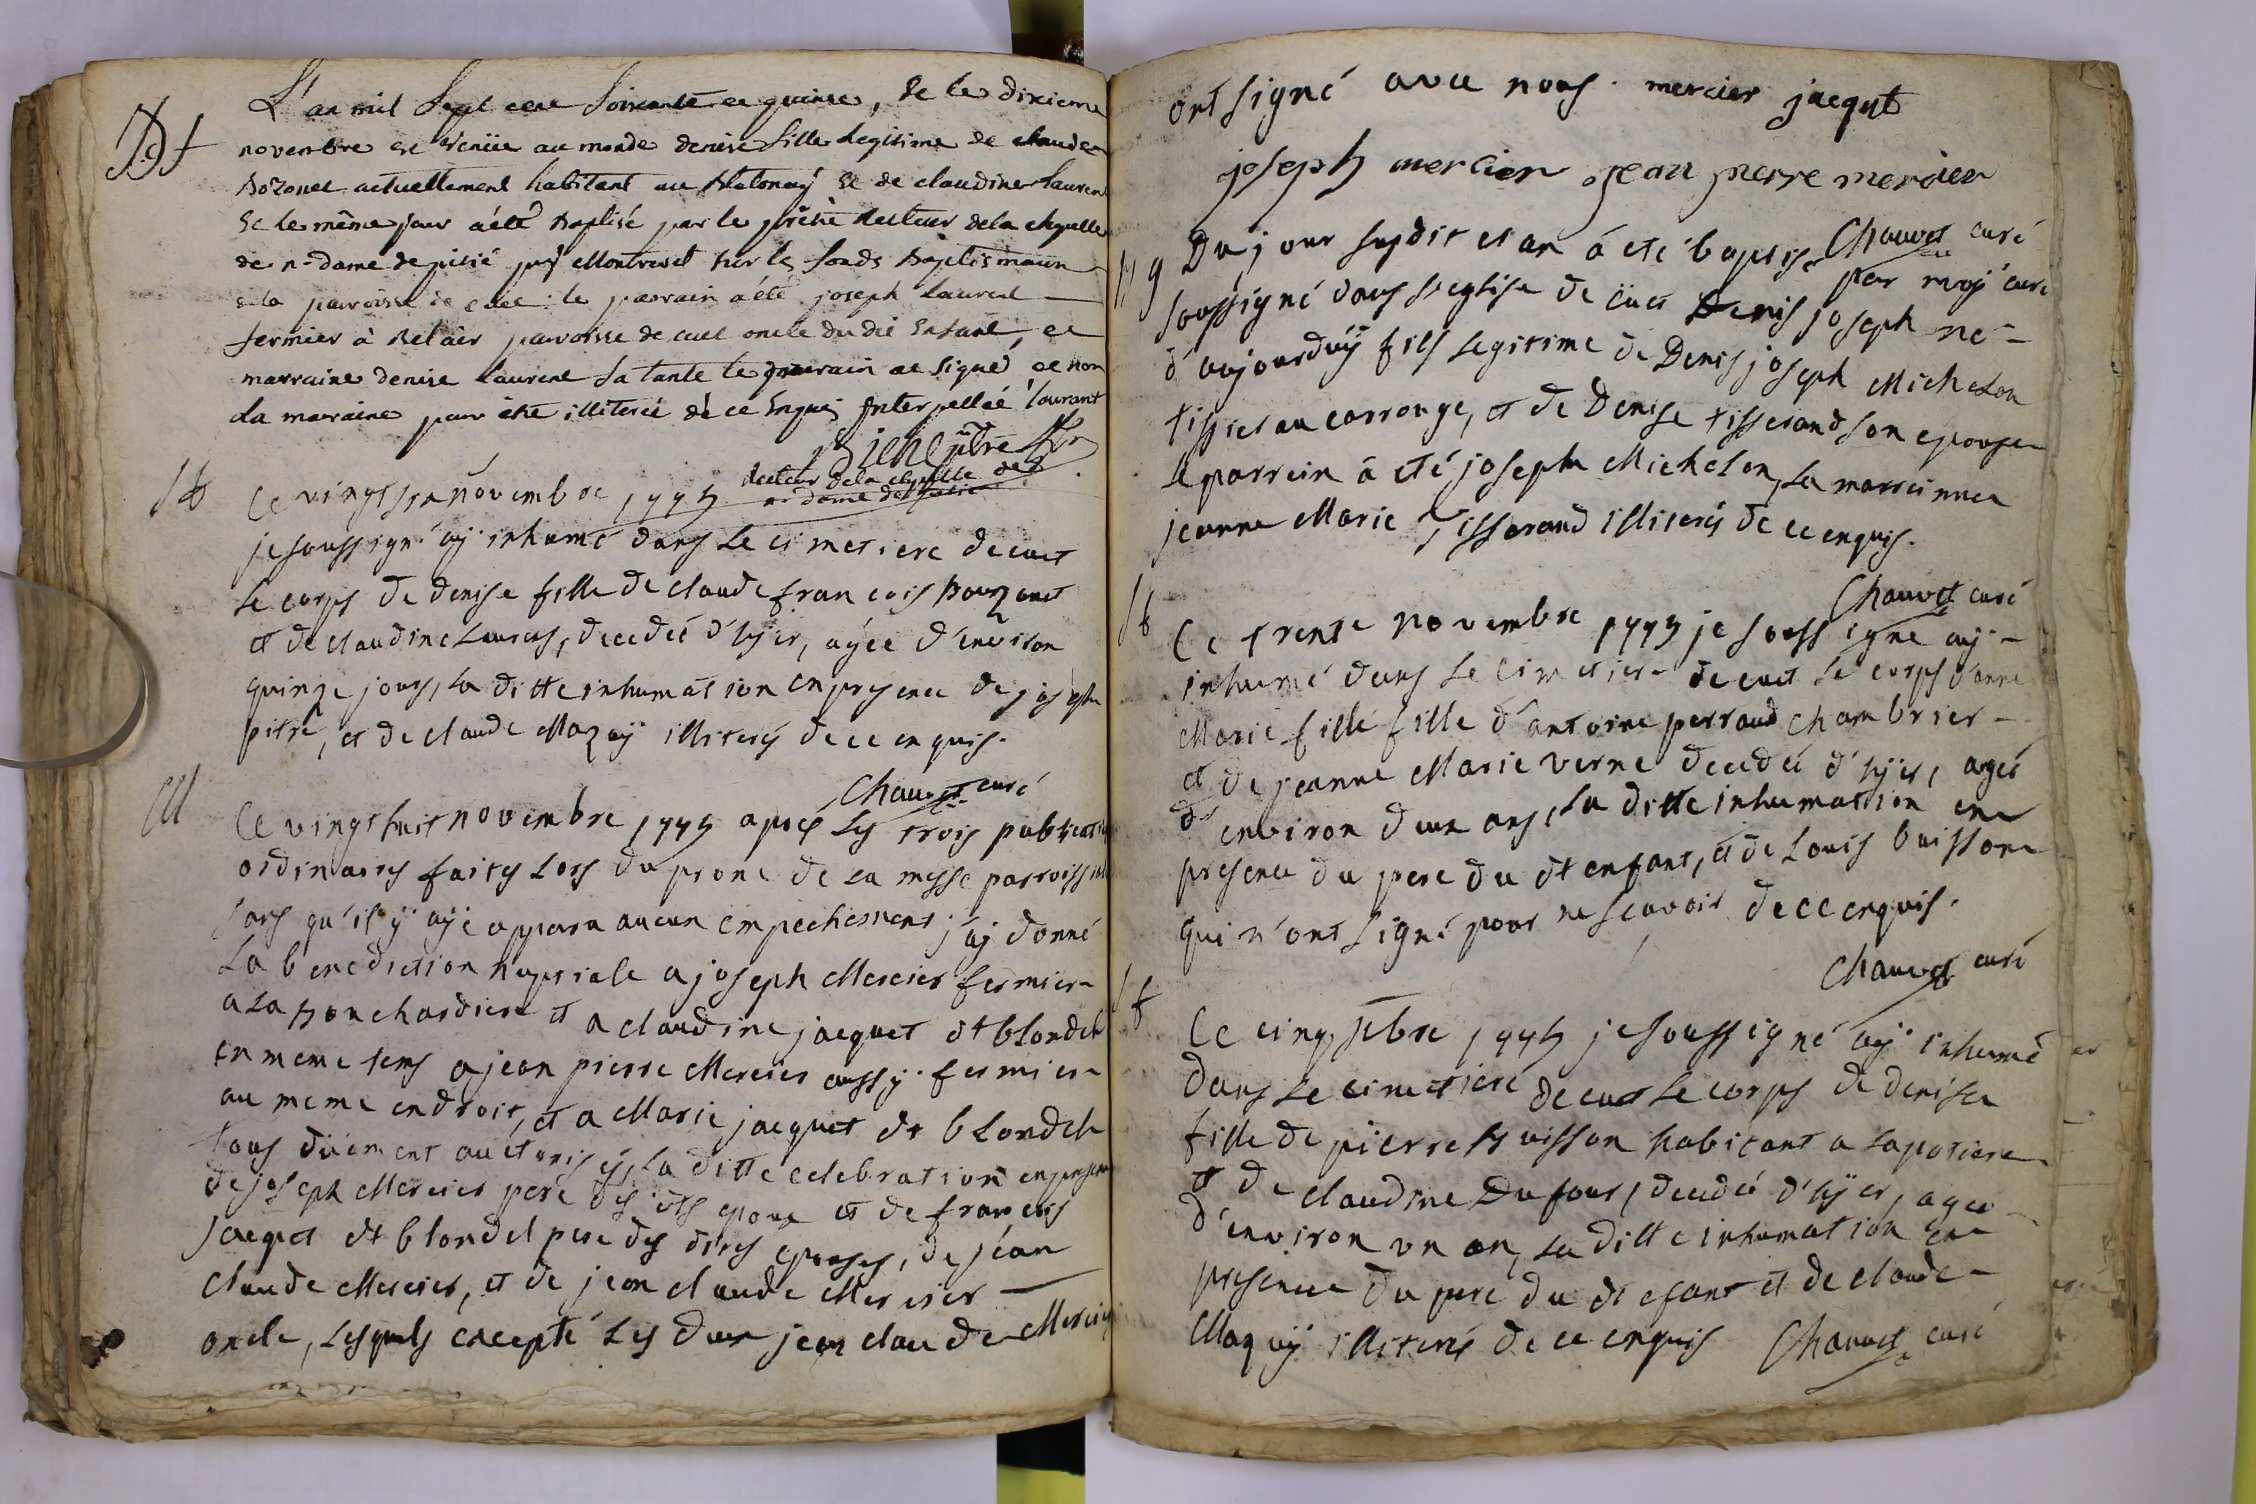 L'an mil Sept cent Soixante et quinze, et le dixieme
novembre est venüe au monde denise fille legitime de claude
Bozonet actuellement habitant au Balonay et de claudine laurent
et le même jour a été Baptisé par le prêtre Recteur de la chapelle
de n-dame de pitié près Montrevel sur les fonds Baptismaux
de la paroisse de cuet: le parrain a été joseph laurent
fermier à Belair paroisse de cuet oncle du dit Enfant, et
marraine denise laurent sa tante le parrain at signé et non
la maraine pour être illiterée de ce Enquis Interpellée laurant
ptre
Recteur de la chapelle de
n-dame de pitié
St
Ce vingt six novembre 1775
je soussigné aÿ inhumé dans le cimetiere de cuet
le corps de denise fille de claude francois Bouzonet
et de claudine Laurens, decedée d'hÿer, agée d'environ
quinze jours, la ditte inhumation en presence de joseph
pitre, et de claude Mazuÿ illiterés de ce enquis.
Chauvet curé
M
Ce vingt huit novembre 1775 après les trois publications
ordinaires faites lors du prone de la messe parroissiale
sans qu'il ÿ aÿe apparu aucun empechement j'aÿ donné
la benediction nuptiale a joseph Mercier fermier
a la Bouchardiere et a claudine jacquet dt blondel
en meme tems a jean pierre Mercier aussÿ fermier
au meme endroit, et a Marie jacquet dt blondel
tous düement auctorisés, la ditte celebration en presence
de joseph Mercier pere des dts epoux et de francois
jacquet dt blondel pere des dites epouses, de jean
claude Mercier, et de jean claude Mercier
oncle, lesquels excepté les deux jean claude Mercier
ont signé avec nous. mercier jacqut
joseph mercier jean pierre mercier
Chauvet curé
Du jour susdit et an á eté baptisé par moÿ curé
soussigné dans l'eglise de cuet Denis joseph né
d'aujourduÿ fils legitime de Denis joseph Michelon
tissier au carronge, et de Denise tisserand son epouse
le parrein á eté joseph Michelon, la marreinne
jeanne Marie Tisserand illiterés de ce enquis.
Chauvet curé
St
Ce trente novembre 1775 je soussigné aÿ
inhumé dans le cimetiere de cuet le corps d'anne
Marie fille fille d'antoine perraud chambrier
et de jeanne Marie verne decedée d'hÿer, agée
d'environ deux ans, la ditte inhumation en
presence du pere du dt enfant, et de Louis buisson
qui n'ont signé pour ne scavoir de ce enquis.
Chauvet curé
St
Ce cinq xbre 1775 je soussigné aÿ inhumé
dans le cimetiere de cuet le corps de denise
fille de pierre Buisson habitant a lapotiere
et de claudine Dufour, decedée d'hÿer, agée
d'environ un an, la ditte inhumation en
presence du pere du dt efant et de claude
Mazuÿ illiterés de ce enquis Chauvet curé